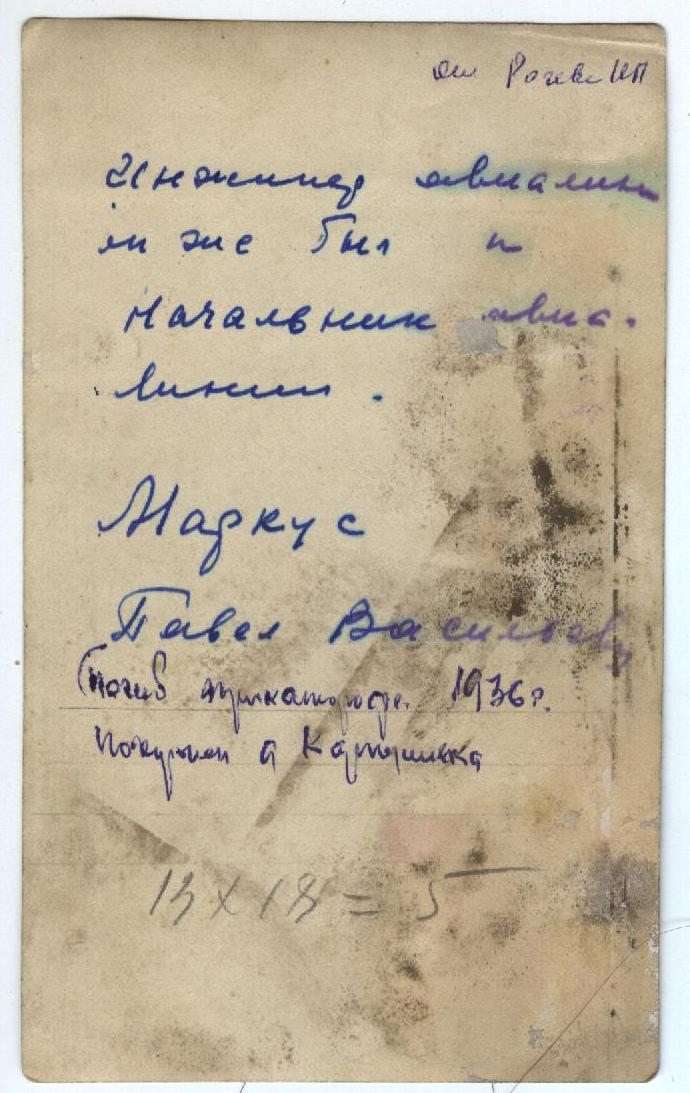 от Рочев ИП
Инжинер авиалинии
он же был и
начальник авиа-
линии.
Маркус
Павел Васильеви
(погиб при катастрофе. 1936г.
похоронен д Картушинка
13 х 18 = 5